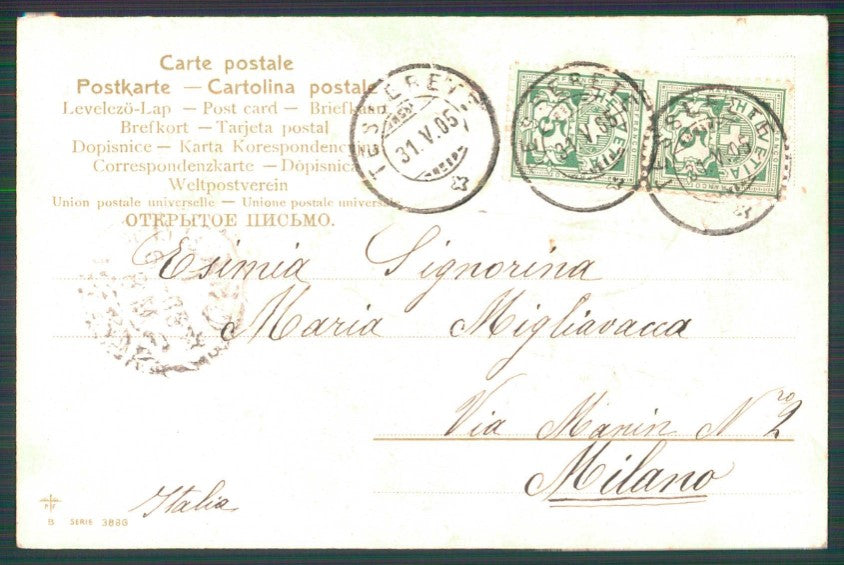 Carte postale
Postkarte — Cartolina postale
Levelező-Lap — Post card — Briefkaart
Brefkort — Tarjeta postal
Dopisnice — Karta Korespondencyjna
Correspondenzkarte — Dopisnica
Weltpostverein
Union postale universelle — Unione postale universale
ОТКРЫТОЕ ПИСЬМО.
TESSERETE
31.V.05
TESSERETE
31.V.05
5
HELVETIA
FRANCO
TESSERETE
31.V.05
HELVETIA
FRANCO
Esimia Signorina
Maria Migliavacca
Via Manin No 2
Milano
Italia
B SERIE 3886